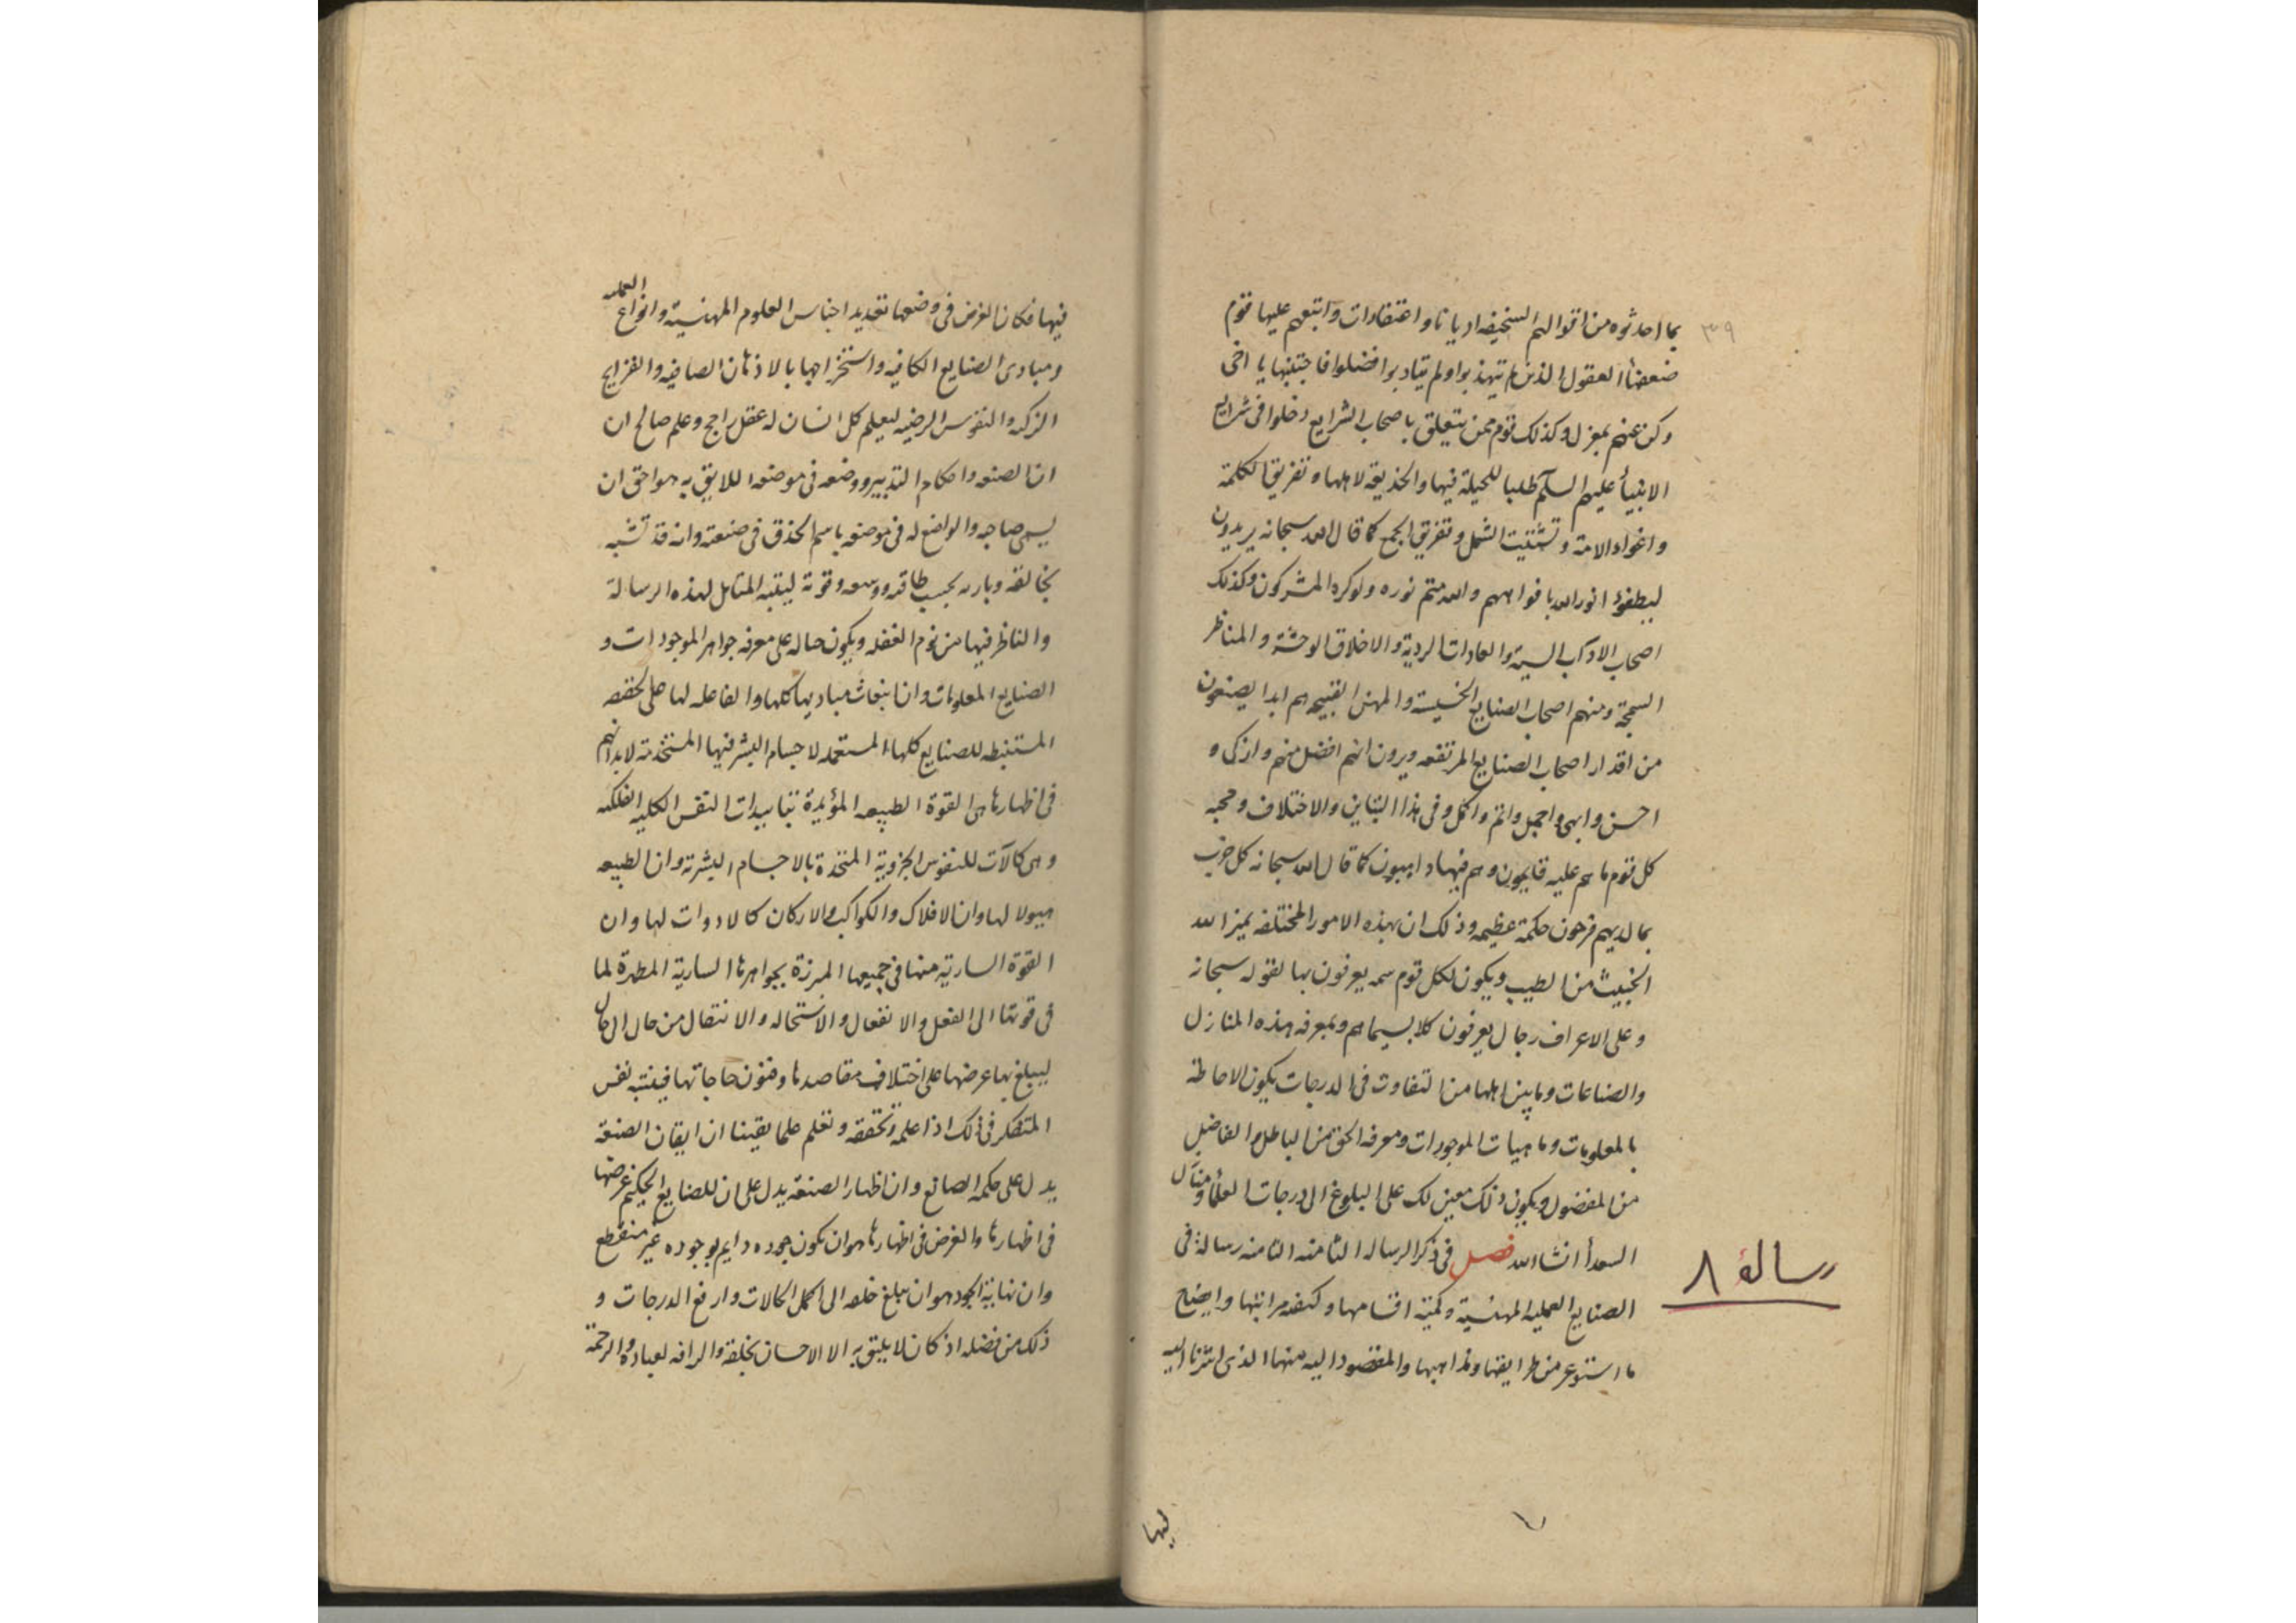 ٣٩
بما احدثوه من اقوالهم السخيفه اديانا و اعتقادات و اتبعهم عليها قوم
ضعفأ العقول الذين لم يتهذبوا ولم يتادبوا فضلوا فاجتنبها يا اخى
وكن عنهم بمعزل وكذلك قوم ممن يتعلق باصحاب الشرايع دخلوا فى شرايع
الانبيأ عليهم السلم طلبا للحيلة فيها والخديعة لاهلها و تفريق الكلمة
و اغواء الامة و تشتيت الشمل و تفريق الجمع كما قال الله سبحانه يريدون
ليطفؤا نور الله بافواههم والله متم نوره ولو كره المشركون وكذلك
اصحاب الاداب السيئة والعادات الردية والاخلاق الوحشة والمناظر
السمجة ومنهم اصحاب الصنايع الخسيسة والمهن القبيحه هم ابدا يضعون
من اقدار اصحاب الصنايع المرتفعه ويرون انهم افضل منهم وازكى و
احسن وابهى واجمل واتم واكمل وفى هذا التباين والاختلاف ومحبه
كل قوم ما هم عليه قايمون وهم فيها دايبون كما قال الله سبحانه كل حزب
بما لديهم فرحون حكمة عظيمه وذلك ان بهذه الامور المختلفه يميز الله
الخبيث من الطيب ويكون لكل قوم سمه يعرفون بها لقوله سبحانه
وعلى الاعراف رجال يعرفون كلا بسيماهم وبمعرفه هذه المنازل
والصناعات وما بين اهلها من التفاوت فى الدرجات يكون الاحاطة
بالمعلومات وماهيات الموجودات ومعرفه الحق من الباطل والفاضل
من المفضول ويكون ذلك معين لك على البلوغ الى درجات العلمأ ومنازل
السعدأ انشا الله فصل فى ذكر الرساله الثامنه الثامنه رسالة فى
رسالة ٨
الصنايع العمليه المهنية وكمية اقسامها وكيفيه مراتبها وايضاح
ما استوعر من طرايقها ومذاهبها والمقصود اليه منها الذى اشرنا اليه
فيها
فيها فكان الغرض فى وضعها تعديد اجناس العلوم المهنية وانواع العمليه
ومبادى الصنايع الكافيه واستخراجها بالاذهان الصافيه والقرايح
الزكيه والنفوس الرضيه ليعلم كل انسان له عقل راجح وعلم صالح ان
اتقان الصنعه واحكام التدبير ووضعه فى موضعه اللايق به هو احق ان
يسمى صاحبه والواضع له فى موضعه باسم الحذق فى صنعته وانه قد تشبه
بخالقه وباريه بحسب طاقته ووسعه وقوته ليتنبه المتامل لهذه الرسالة
والناظر فيها من نوم الغفله ويكون حاله على معرفه جواهر الموجودات و
الصنايع المعلومات وان انبعاث مباديها كلها والفاعله لها على الحقيقه
المستنبطه للصنايع كلها المستعمله لاجسام البشر فيها المستخدمة لابدانهم
فى اظهارها هى القوة الطبيعه المؤيدة بتاييدات النفس الكليه الفلكيه
وهى كالآت للنفوس الجزوية المتحدة بالاجسام البشرية وان الطبيعه
هيولا لها وان الافلاك والكواكب والاركان كالادوات لها وان
القوة السارية منها فى جميعها المبرزة بجواهرها السارية المظهرة لما
فى قوتها الى الفعل والانفعال والاستحاله والانتقال من حال الى حال
ليبلغ بها غرضها على اختلاف مقاصدها وفنون حاجاتها فينتبه نفس
المتفكر فى ذلك اذا علمه وتحققه وتعلم علما يقينا ان ايقان الصنعة
يدل على حكمه الصانع وان اظهار الصنعه يدل على ان للصانع الحكيم غرضا
فى اظهارها والغرض فى اظهارها هو ان يكون جوده دايم بوجوده غير منقطع
وان نهاية الجود هو ان يبلغ خلقه الى اكمل الكالات وارفع الدرجات و
ذلك من فضله اذ كان لا يليق به الا الاحسان بخلقه والرافه لعباده والرحمة